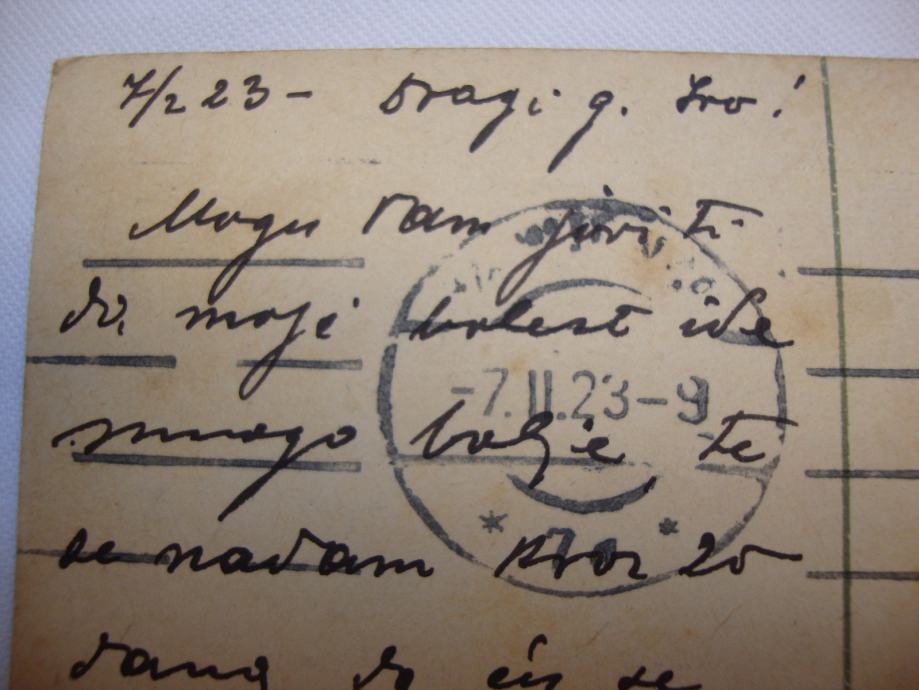 7/2 23 – Dragi g. Ivo!
Mogu Vam javiti
da moja bolest ide
mnogo bolje te
se nadam kroz 20
dana da ću se
-7.II.23-9